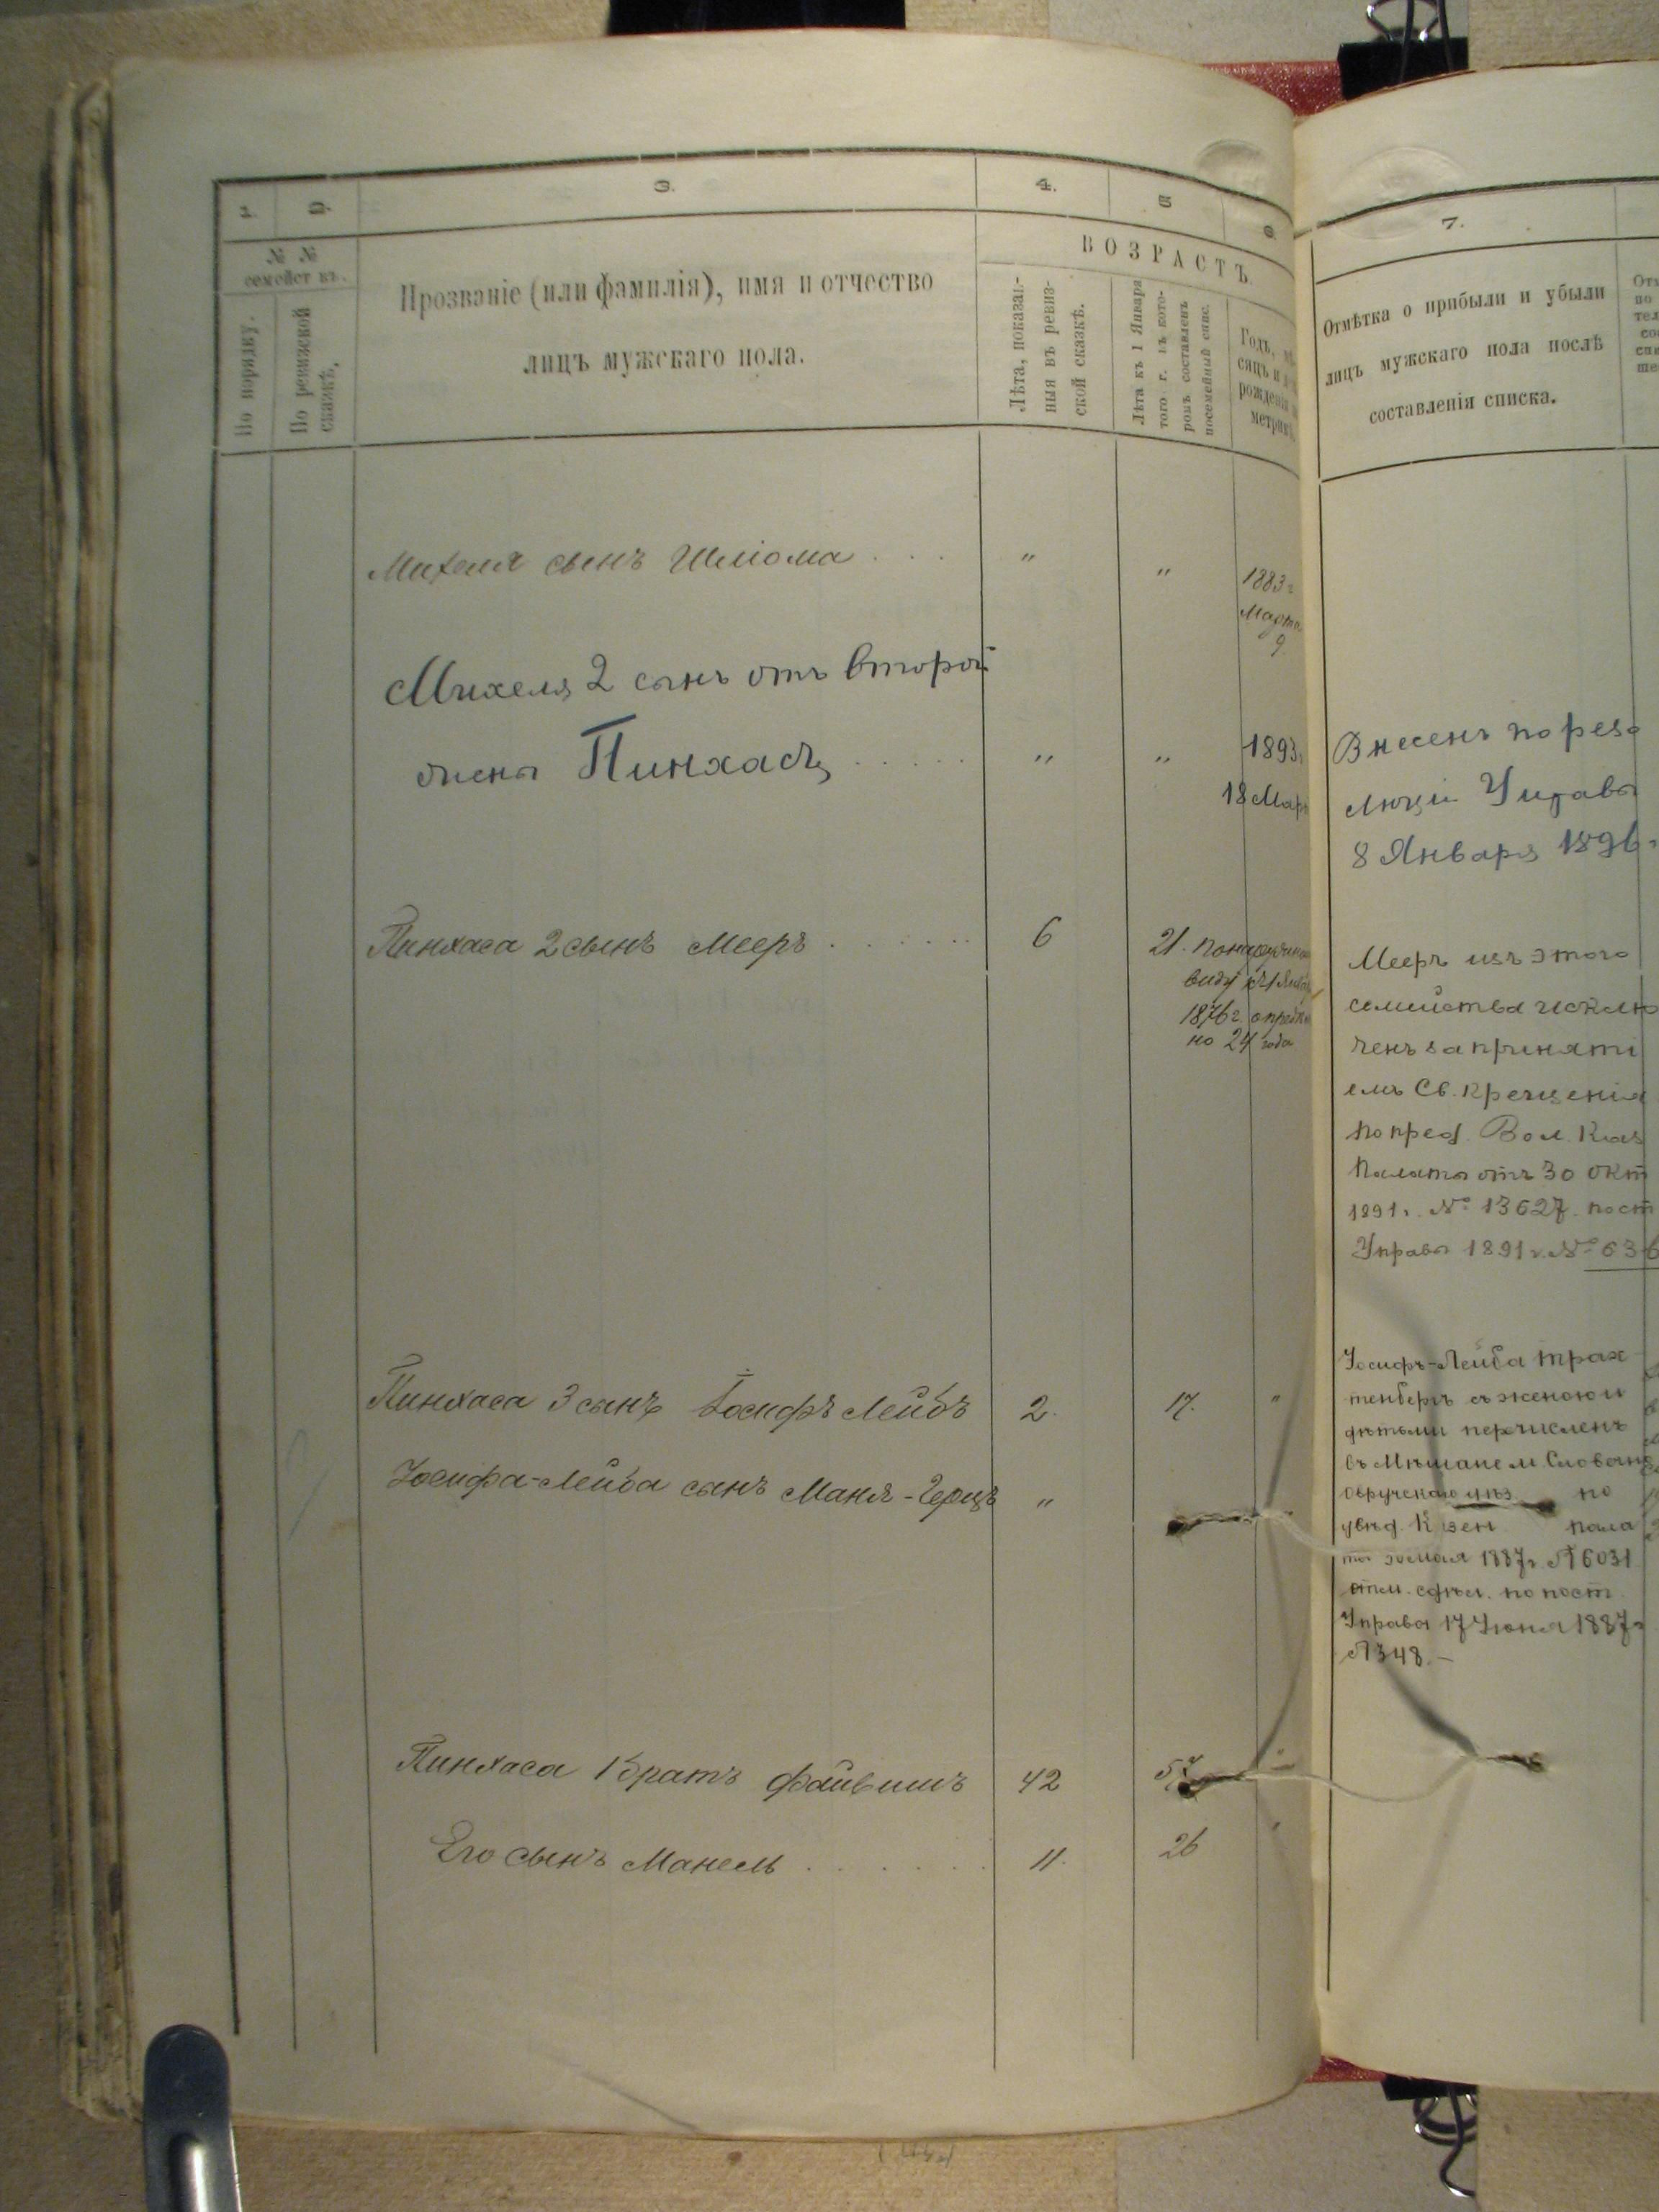 1. 2. 3. 4. 5 6
№ №
семействъ.
По порядку.
По ревизской
сказкѣ.
Прозваніе (или фамилія), имя и отчество
лицъ мужскаго пола.
ВОЗРАСТЪ.
Лѣта, показан-
ныя въ ревиз-
ской сказкѣ.
Лѣта къ 1 Января
того г. въ кото-
ромъ составленъ
посемейный спис.
Годъ, мѣ
сяцъ и
рожденія
метрик
7.
Отмѣтка о прибыли и убыли
лицъ мужскаго пола послѣ
составленія списка.
Михеля сынъ Шліома . . . . " " 1883 г
Марта
9
Михеля 2 сынъ отъ второй
жены Пинхасъ . . . . . . " " 1893
18 Мар
Внесенъ по резо
люціи Управы
8 Января 1896
Пинхаса 2 сынъ Мееръ . . . . . . 6 21. По наружному
виду къ 1 Янв
1876 г. опредѣле
но 24 года
Мееръ изъ этого
семейства исклю
ченъ за приняті
емъ Св. Крещенія
по пред. Вол. Каз
Палаты отъ 30 окт
1891 г. № 13627. пост
Управы 1891 г. № 636
Пинхаса 3 сынъ Іосифъ Лейбъ 2. 17. "
Іосифа-Лейба сынъ Маня-Герцъ "
Іосифъ-Лейба Трах
тенбергъ съ женою и
дѣтьми перечисленъ
въ Мѣщане м. Словечно
Овручскаго уѣз по
увѣд. Казен пала
ты 30 мая 1887 г. № 6031
отм. сдѣл. по пост.
Управы 17 Іюня 1887 г
№ 348. —
Пинхаса братъ Файвишъ 42 57 "
Его сынъ Манель . . . . . . . 11. 26 "